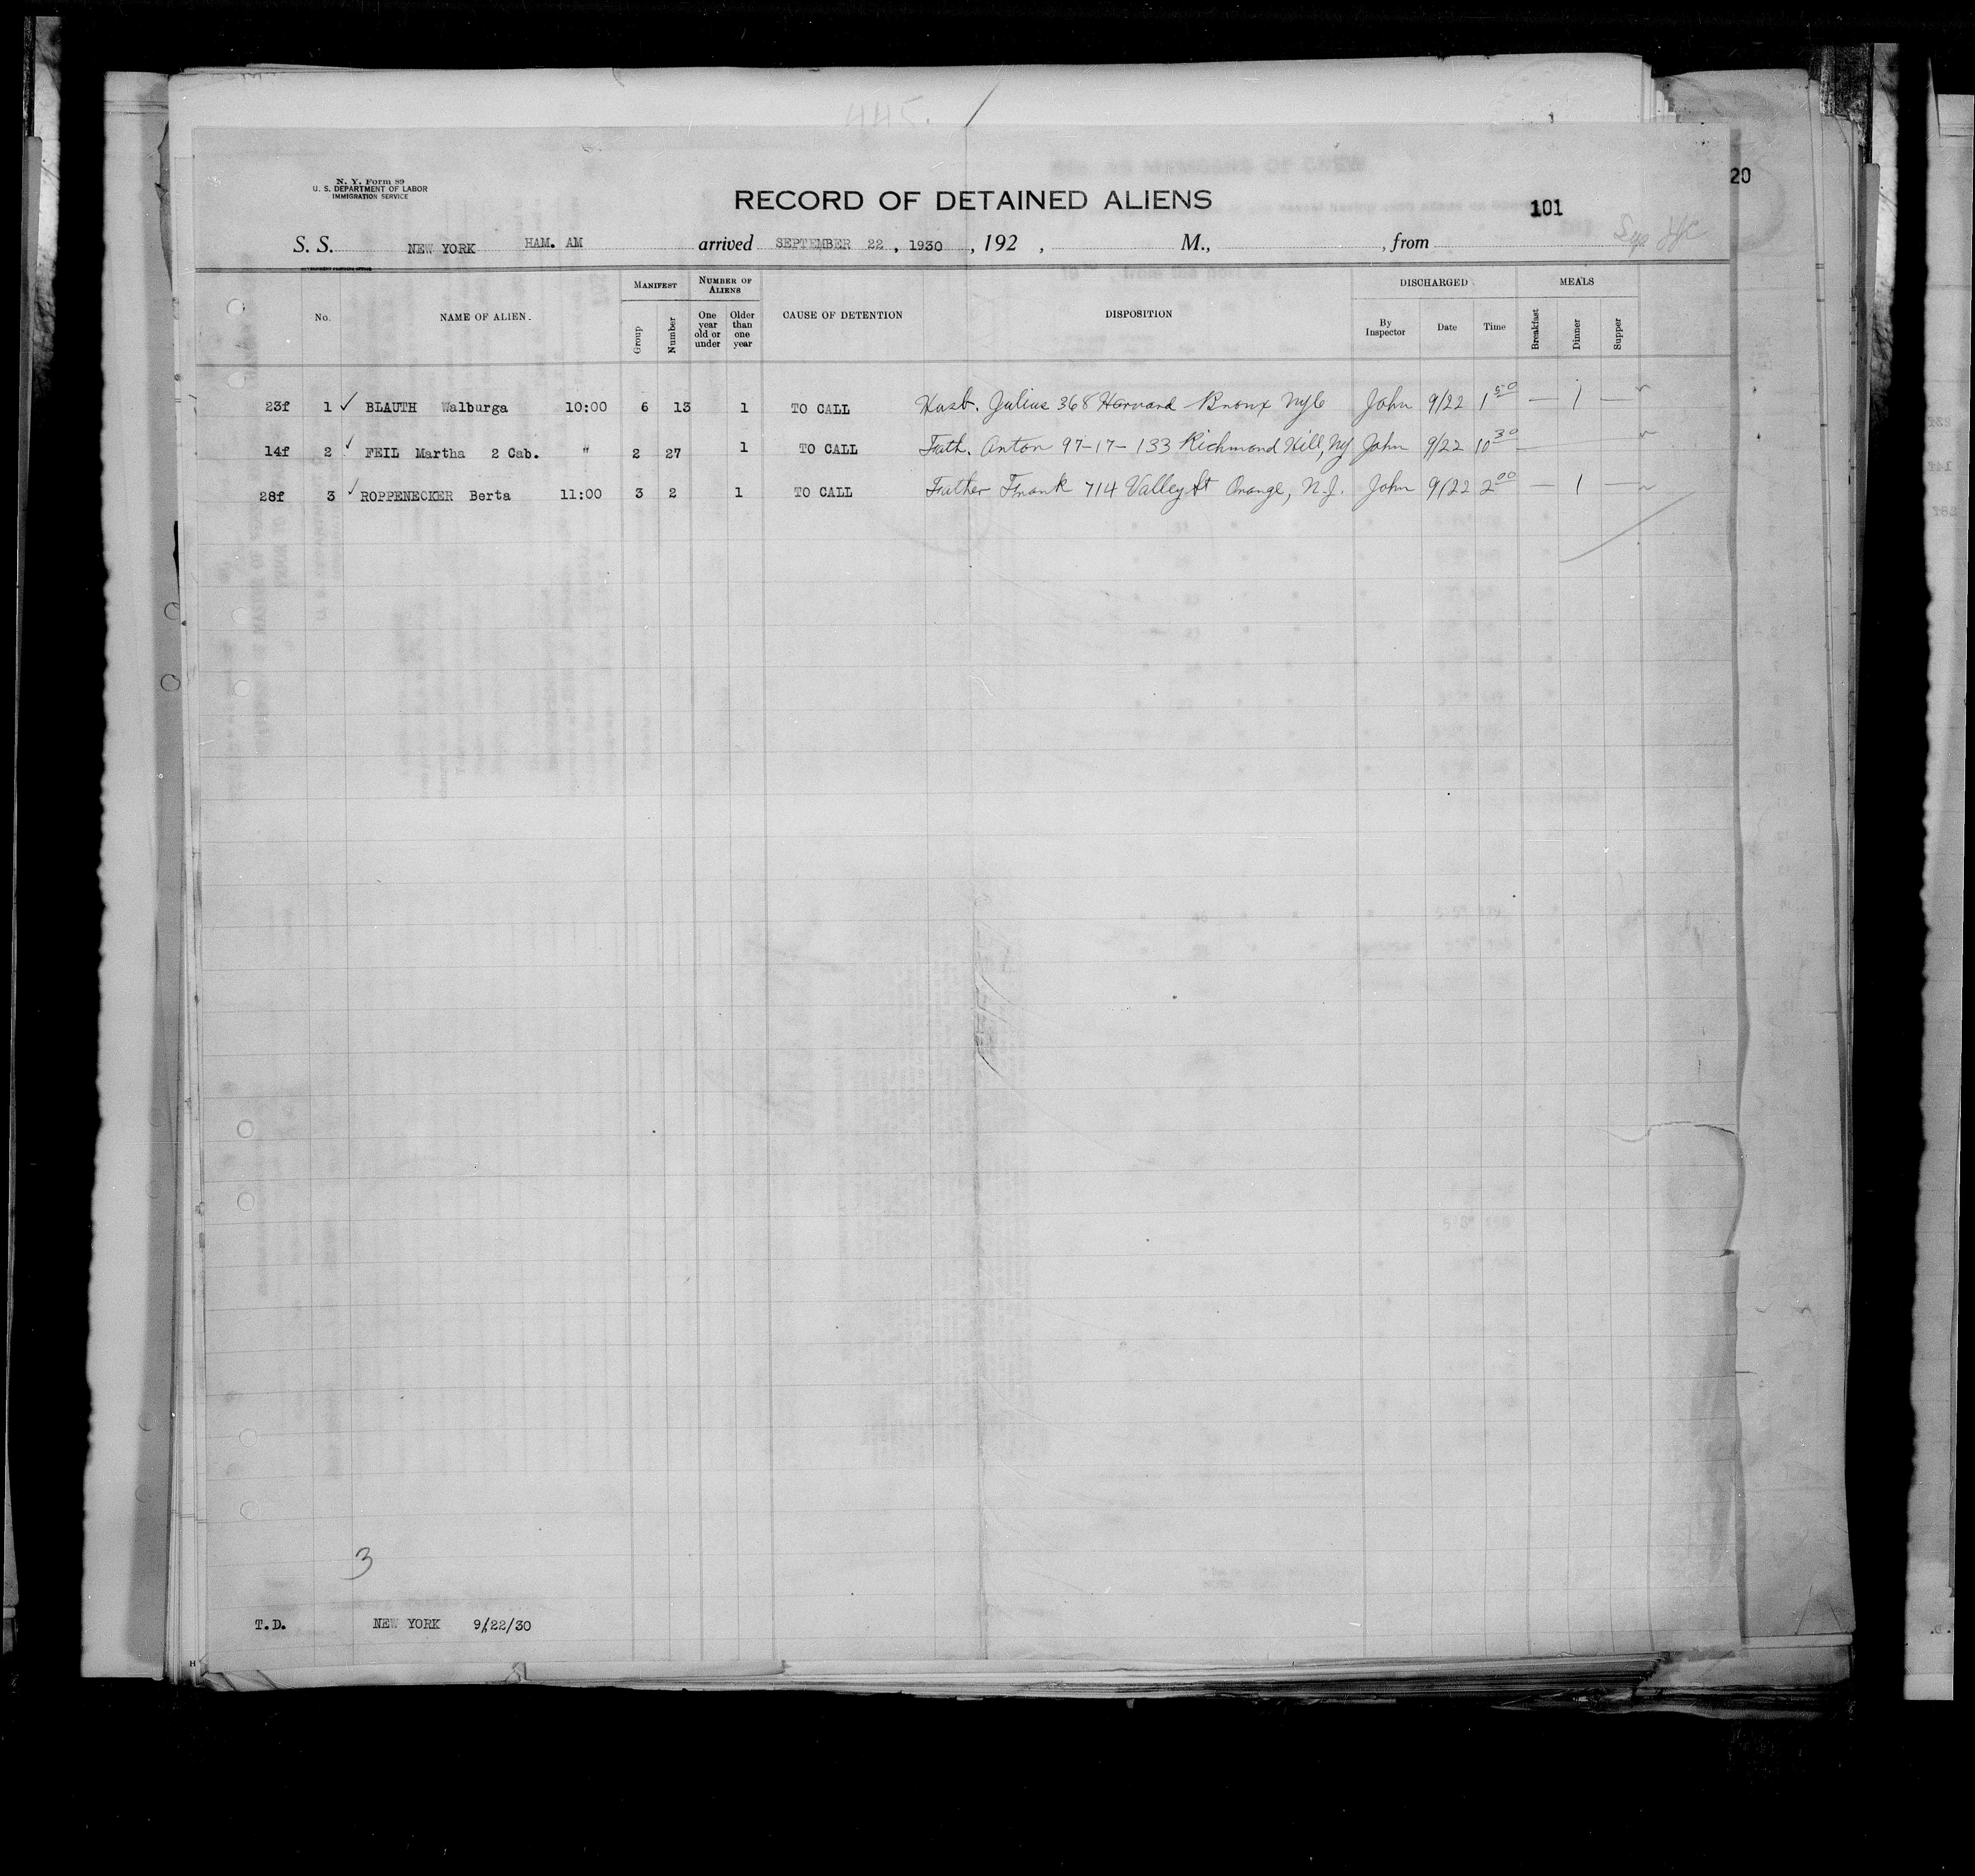 445.
20
N. Y. Form 89
U. S. DEPARTMENT OF LABOR
IMMIGRATION SERVICE
RECORD OF DETAINED ALIENS
101
S. S. NEW YORK HAM. AM arrived SEPTEMBER 22, 1930, 192 , M., , from
No. NAME OF ALIEN. MANIFEST Group Number NUMBER OF ALIENS One year old or under Older than one year CAUSE OF DETENTION DISPOSITION DISCHARGED By Inspector Date Time MEALS Breakfast Dinner Supper
23f 1 ✓ BLAUTH Walburga 10:00 6 13 1 TO CALL Husb. Julius 368 Harvard Bronx John 9/22 1 50 — 1 —
14f 2 ✓ FEIL Martha 2 Cab. " 2 27 1 TO CALL Fath. Anton 97-17-133 Richmond Hill, NY John 9/22 10 30 —
28f 3 ✓ ROPPENECKER Berta 11:00 3 2 1 TO CALL Father Frank 714 Valley St Orange, N.J. John 9/22 2 00 — 1 —
3
T.D. NEW YORK 9/22/30